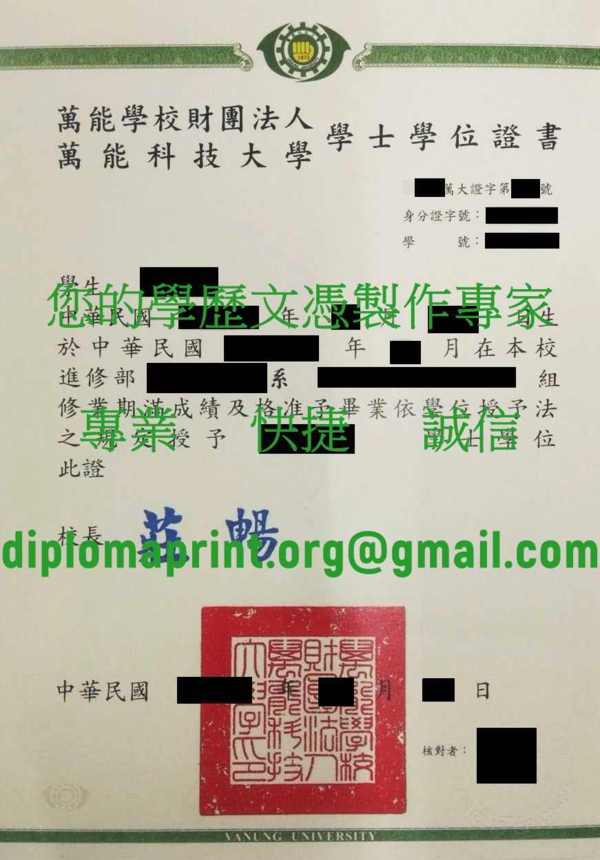 萬能學校財團法人
萬能科技大學
學士學位證書
萬大證字第 號
身分證字號：
學 號：
學生
您的學歷文憑製作專家
中華民國 年 月 日生
於中華民國 年 月在本校
進修部 系 組
修業期滿成績及格准予畢業依學位授予法
專業 快捷 誠信
之規定授予 學士學位
此證
校長 莊暢
diplomaprint.org@gmail.com
萬能學校財團法人萬能科技大學印
中華民國 年 月 日
核對者：
VANUNG UNIVERSITY